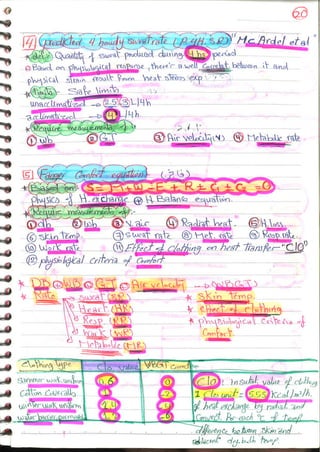 20
[4] Predicted 4 hourly sweat rate (P4H.S.R) "Mc. Ardel et al"
* def: Quantity of sweat produced during 4 hrs period
Based on physiological response, there's a well Correlat. between it and
physical strain result from heat stress exp.
* limits: Safe limits
unacclimatized → 2.5 L/4h
acclimatized → L/4h
* Require measurements of:
① wb ② GT ③ Air velocity (V) ④ Metabolic rate
[5] Fanger Comfort equation
* Based on: S = M + W - E + R ± C ± C = 0
physics of H. exchange & H. Balance equation.
* Require measurements of:
① db ② wb ③ V. air ④ Radiant heat. ⑤ H. loss
⑥ Skin Temp. ⑦ sweat rate ⑧ Met. rate ⑨ Resp. rate
⑩ Work rate ⑪ Effect of clothing on heat Transfer "ClO"
⑫ physiological criteria of Comfort
* DB WB GT Air velocity → (WBGT)
* Rate → sweat (SR) * Skin Temp.
Heart (HR) * effect of clothing
Resp. (RR) * physiological Criteria of
Work (WR) Comfort
Metabolic (MR)
Clothing type Clo value WBGT Correction
Summer work uniform 0.6 0
Cotton Coveralls
winter work uniform 1.4
water barrier, permeable 1.2
Clo: Insulat. value of clothing
1 clo unit = 5.55 Kcal/m²/h
of heat exchange by radiat. and
Convect. for each °C of Temp.
difference between Skin and
dry bulb temp.